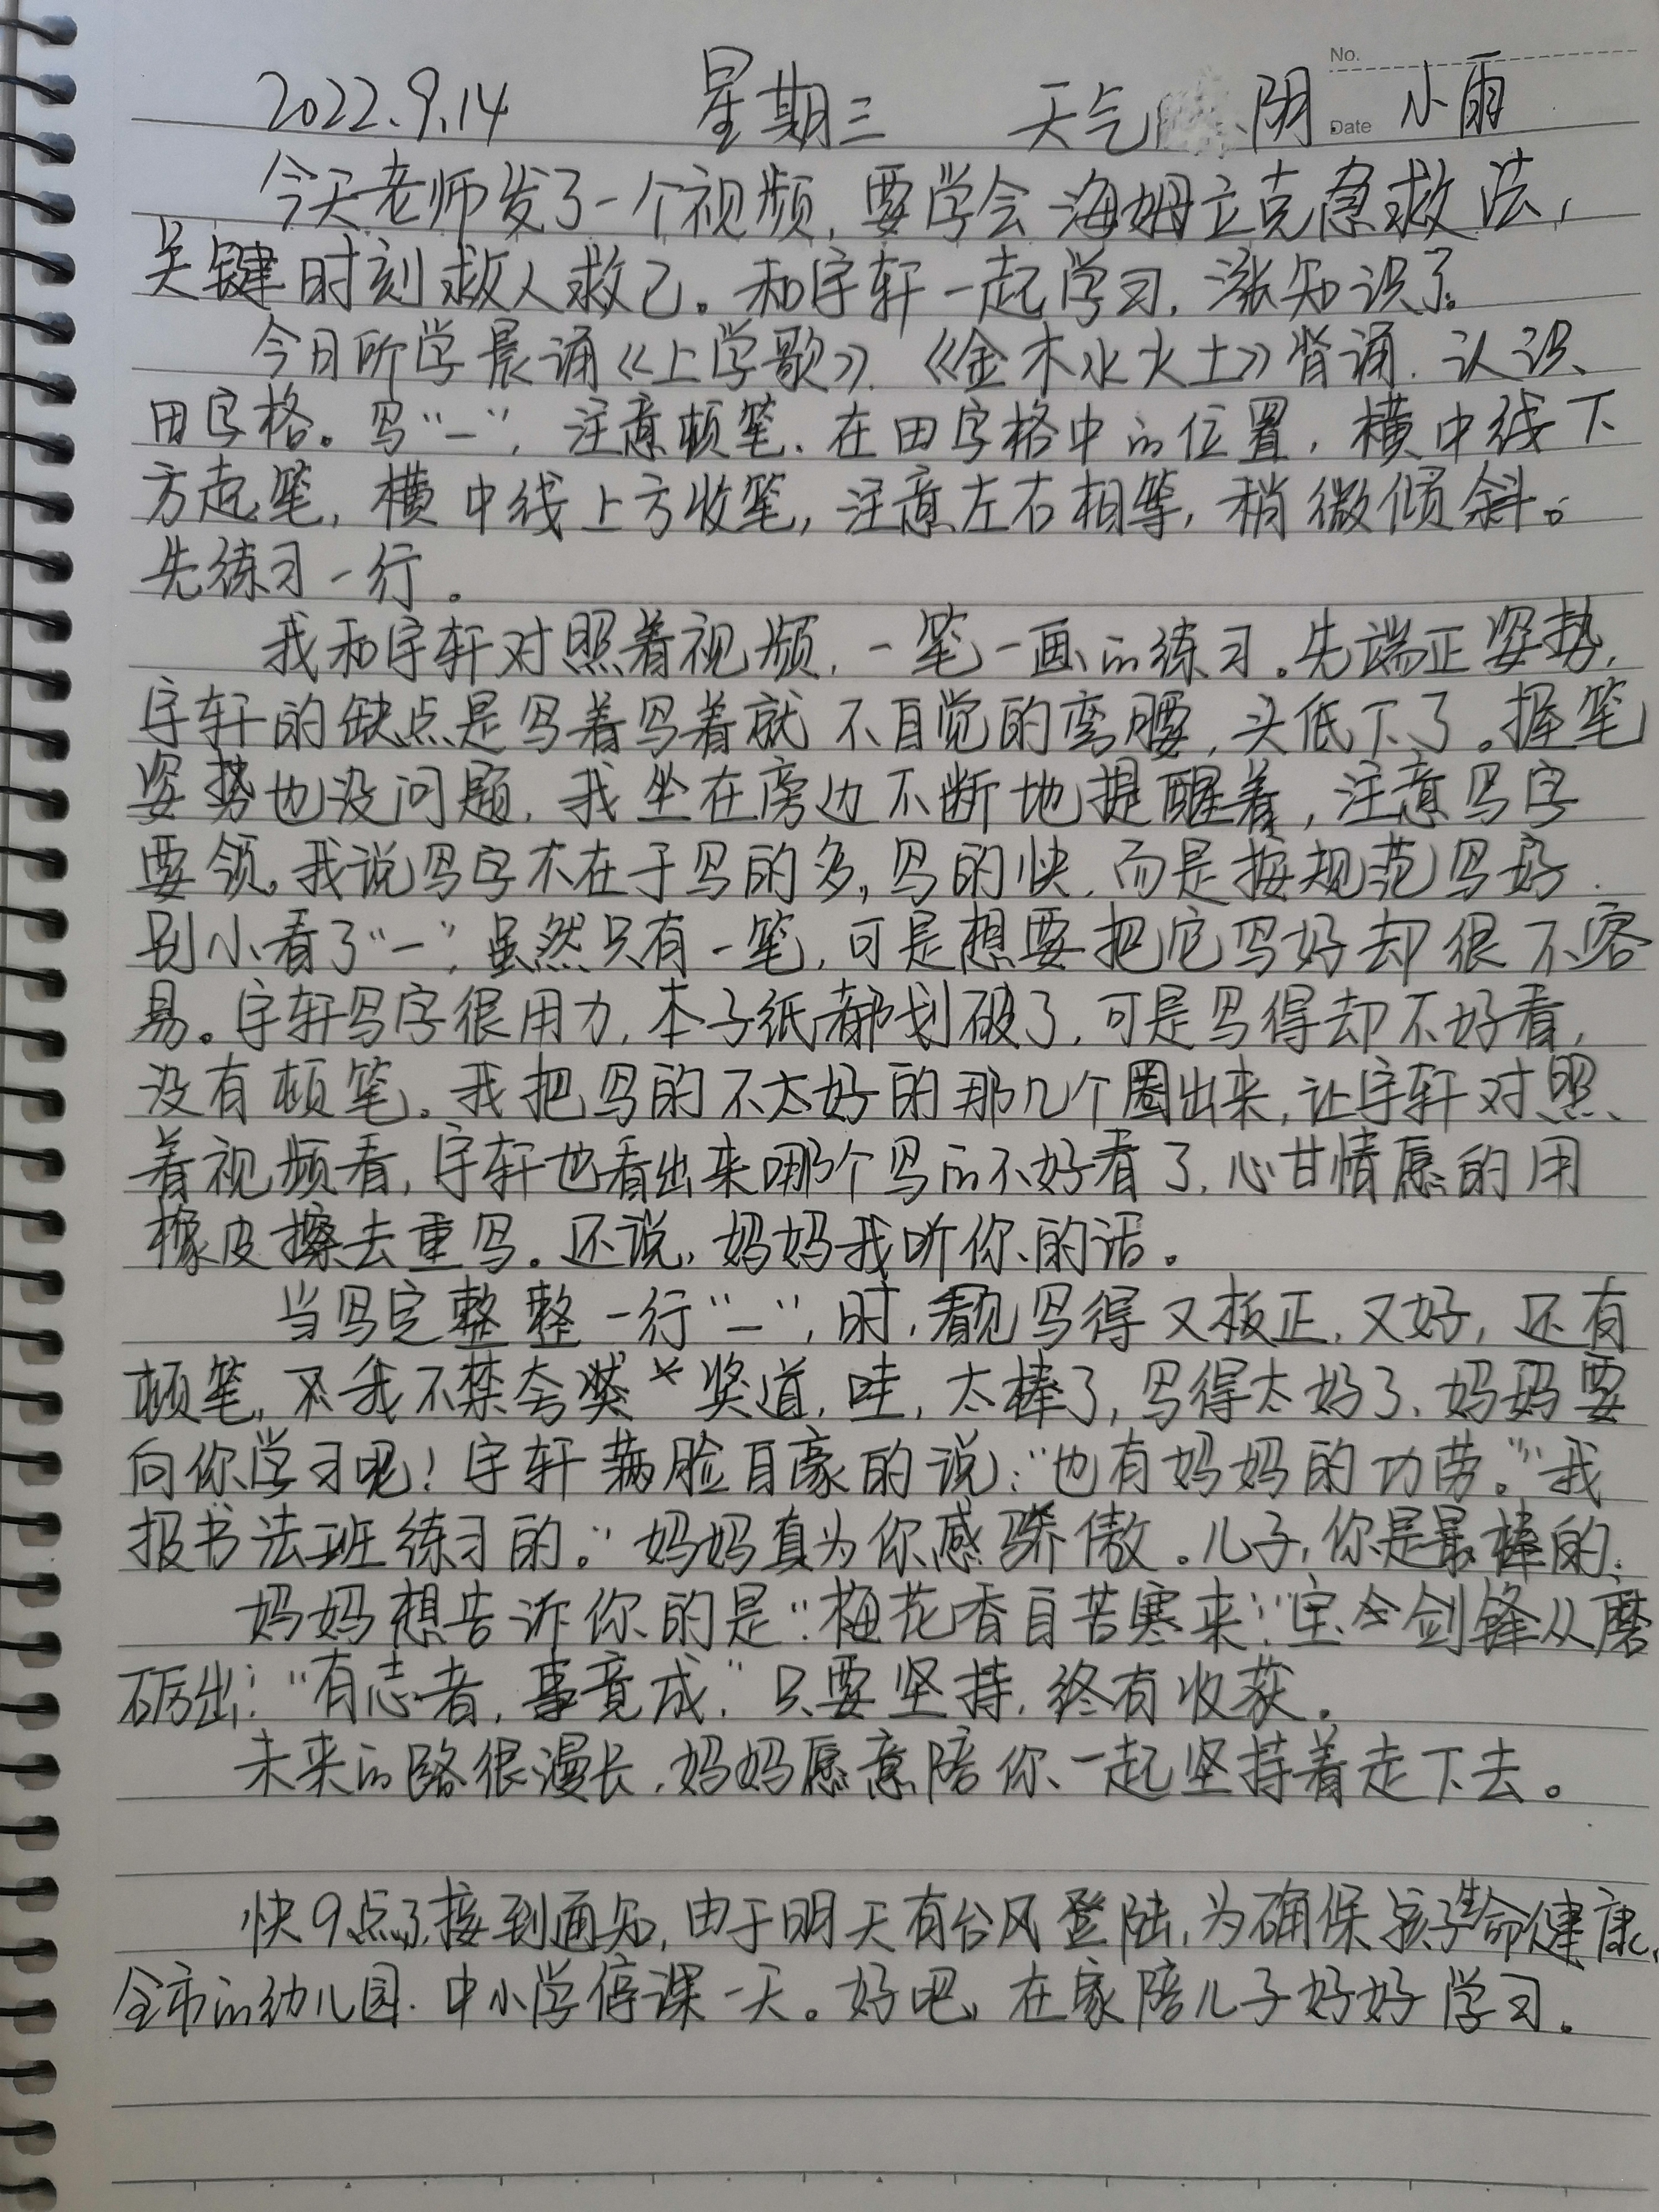 No.
2022.9.14 星期三 天气 阴 Date 小雨
今天老师发了一个视频,要学会海姆立克急救法,
关键时刻救人救己。和宇轩一起学习,涨知识了。
今日所学晨诵《上学歌》.《金木水火土》背诵.认识
田字格。写“一”,注意顿笔、在田字格中的位置,横中线下
方起笔,横中线上方收笔,注意左右相等,稍微倾斜。
先练习一行。
我和宇轩对照着视频,一笔一画的练习。先端正姿势,
宇轩的缺点是写着写着就不自觉的弯腰,头低下了。握笔
姿势也没问题,我坐在旁边不断地提醒着,注意写字
要领。我说写字不在于写的多,写的快,而是按规范写好.
别小看了“一”,虽然只有一笔,可是想要把它写好却很不容
易。宇轩写字很用力,本子纸都划破了,可是写得却不好看,
没有顿笔。我把写的不太好的那几个圈出来,让宇轩对照
着视频看,宇轩也看出来哪个写的不好看了,心甘情愿的用
橡皮擦去重写。还说,妈妈我听你的话。
当写完整整一行“一”,时,看见写得又板正,又好,还有
顿笔,我不禁夸奖道,哇,太棒了,写得太好了,妈妈要
向你学习呢!宇轩满脸自豪的说:“也有妈妈的功劳。”“我
报书法班练习的。”妈妈真为你感骄傲。儿子,你是最棒的.
妈妈想告诉你的是“梅花香自苦寒来”“宝剑锋从磨
砺出”“有志者,事竟成,”只要坚持,终有收获。
未来的路很漫长,妈妈愿意陪你一起坚持着走下去。
快9点了接到通知,由于明天有台风登陆,为确保孩子生命健康,
全市的幼儿园.中小学停课一天。好吧,在家陪儿子好好学习。